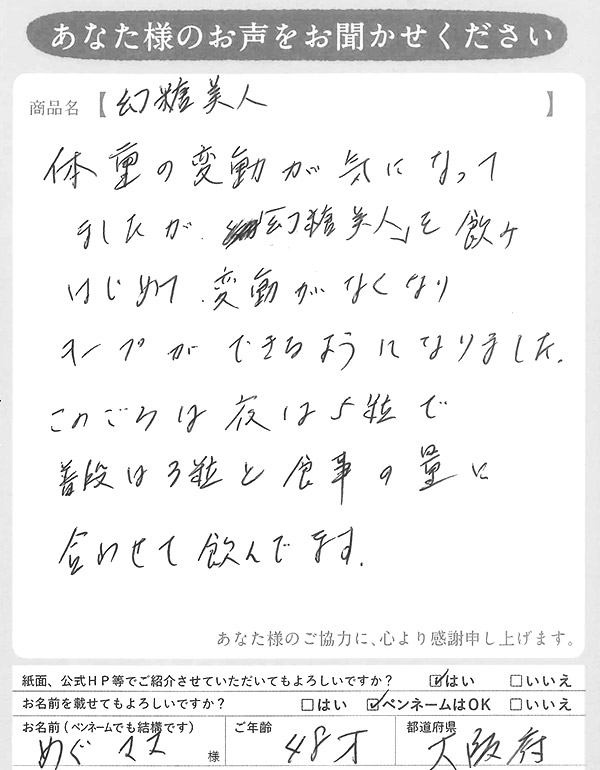 あなた様のお声をお聞かせください
商品名【幻糖美人】
体重の変動が気になって
ましたが、「幻糖美人」を飲み
はじめて、変動がなくなり
キープができるようになりました。
このごろは夜は5粒で
普段は3粒と食事の量に
合わせて飲んでます。
あなた様のご協力に、心より感謝申し上げます。
紙面、公式HP等でご紹介させていただいてもよろしいですか? ☑はい □いいえ
お名前を載せてもよろしいですか? □はい ☑ペンネームはOK □いいえ
お名前(ペンネームでも結構です) ご年齢 都道府県
めぐママ 様 48才 大阪府